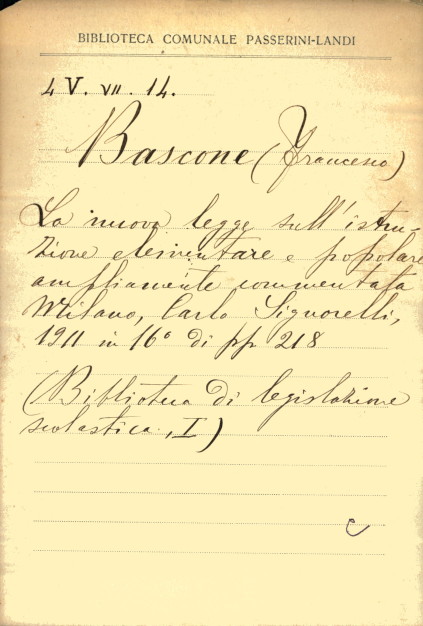 BIBLIOTECA COMUNALE PASSERINI-LANDI
4 V. VII. 14.
Bascone (Francesco)
La nuova legge sull'istru-
zione elementare e popolare
ampliamente commentata
Milano, Carlo Signorelli,
1911 in 16° di pp 218
(Biblioteca di legislazione
scolastica, I)
c